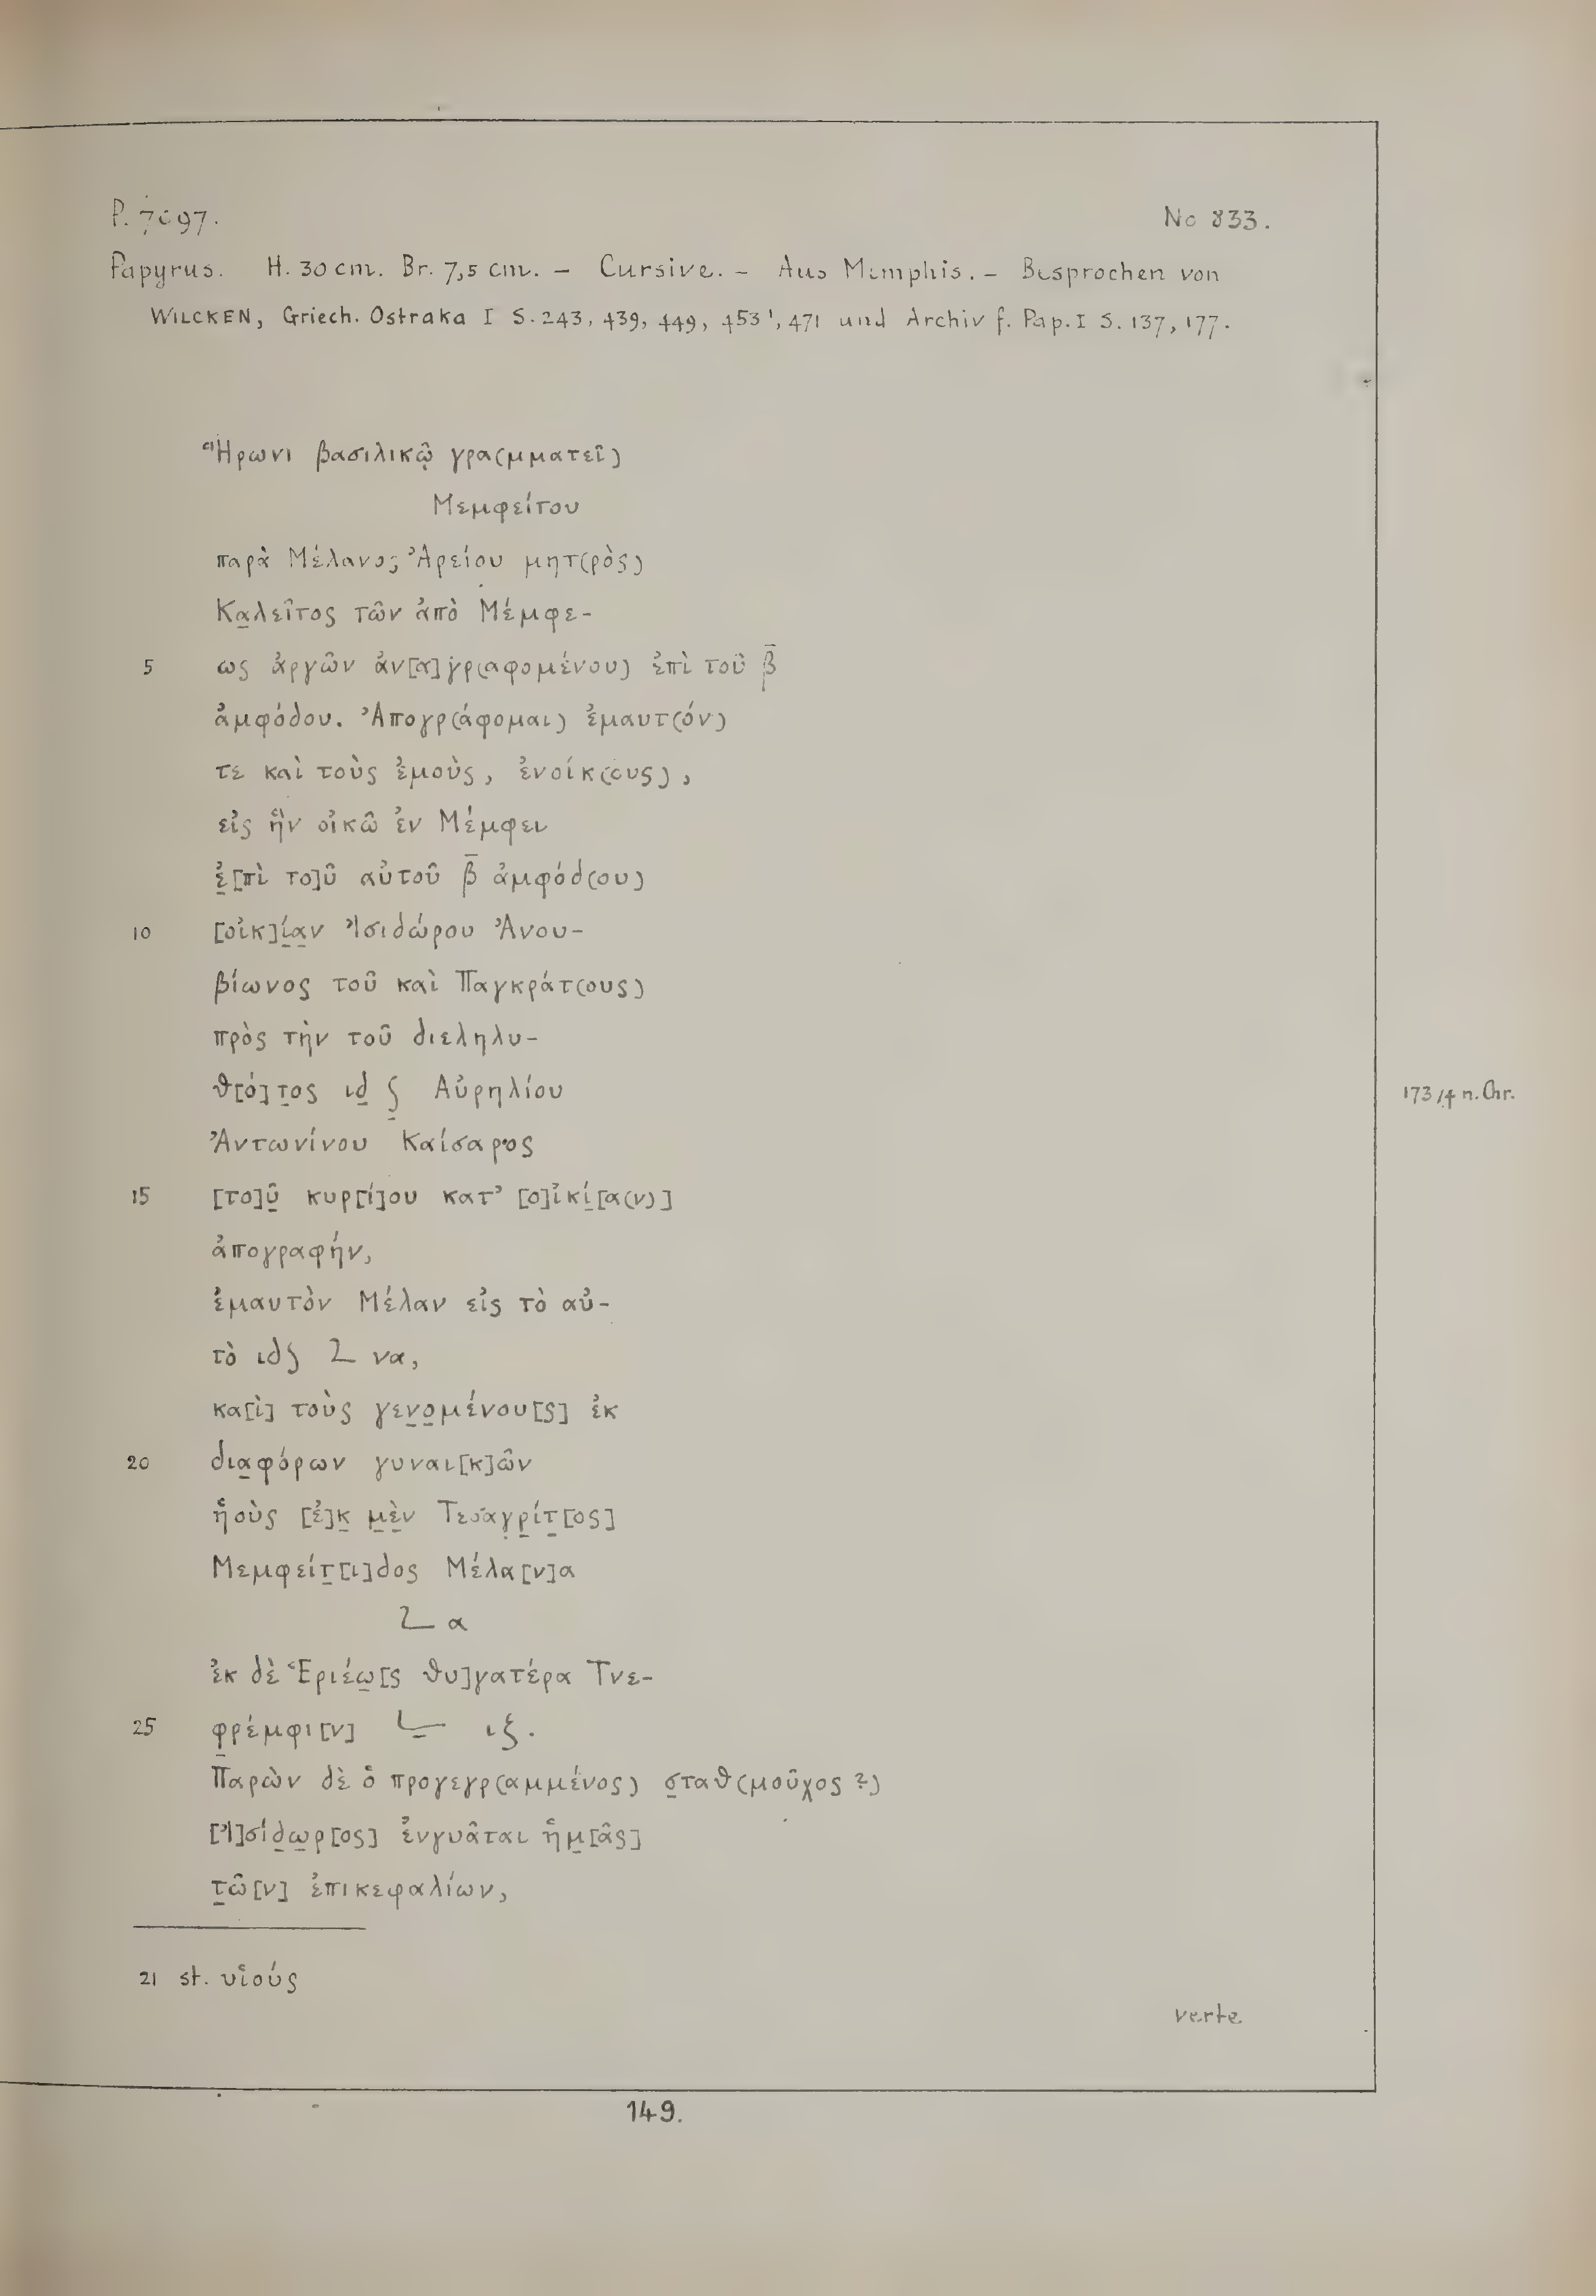 P. 7097.
No 833.
Papyrus. H. 30 cm. Br. 7,5 cm. – Cursive. – Aus Memphis. – Besprochen von
WILCKEN, Griech. Ostraka I S. 243, 439, 449, 453¹, 471 und Archiv f. Pap. I S. 137, 177.
Ἥρωνι βασιλικῷ γρα(μματεῖ)
Μεμφείτου
παρὰ Μέλανος Ἀρείου μητ(ρὸς)
Κα̣λεῖτος τῶν ἀπὸ Μέμφε-
5 ως ἀργῶν ἀν[α]γρ(αφομένου) ἐπὶ τοῦ β̄
ἀμφόδου. Ἀπογρ(άφομαι) ἐμαυτ(όν)
τε καὶ τοὺς ἐμοὺς, ἐνοίκ(ους),
εἰς ἣν οἰκῶ ἐν Μέμφει
ἐ̣[πὶ το]ῦ αὐτοῦ β̄ ἀμφόδ(ου)
10 [οἰκ]ί̣α̣ν Ἰσιδώρου Ἀνου-
βίωνος τοῦ καὶ Παγκράτ(ους)
πρὸς τὴν τοῦ διεληλυ-
θ[ό]τ̣ος ιδ̣ ʃ̣ Αὐρηλίου
173/4 n. Chr.
Ἀντωνίνου Καίσαρος
15 [το]ῦ̣ κυρ[ί]ου κατʼ [ο]ἰκί̣[α(ν)]
ἀπογραφήν,
ἐμαυτὸν Μέλαν εἰς τὸ αὐ-
τὸ ιδʃ L να,
κα[ὶ] τοὺς γεν̣ο̣μένου[ς] ἐκ
20 δια̣φόρων γυναι[κ]ῶν
ἡοὺς [ἐ]κ̣ μ̣ὲ̣ν Τεσαγρ̣ίτ̣[ος]
Μεμφείτ̣[ι]δος Μέλα[ν]α
L α
ἐκ δὲ Ἑριέω̣[ς θυ]γατέρα Τνε-
25 φ̣ρέμφι[ν] Ḷ ιξ.
Παρὼν δὲ ὁ προγεγρ(αμμένος) σ̣ταθ(μοῦχος ?)
[Ἰ]σίδ̣ω̣ρ[ος] ἐνγυᾶται ἡμ̣[ᾶς]
τ̣ῶ[ν] ἐπικεφαλίων,
21 st. υἱούς
verte
149.